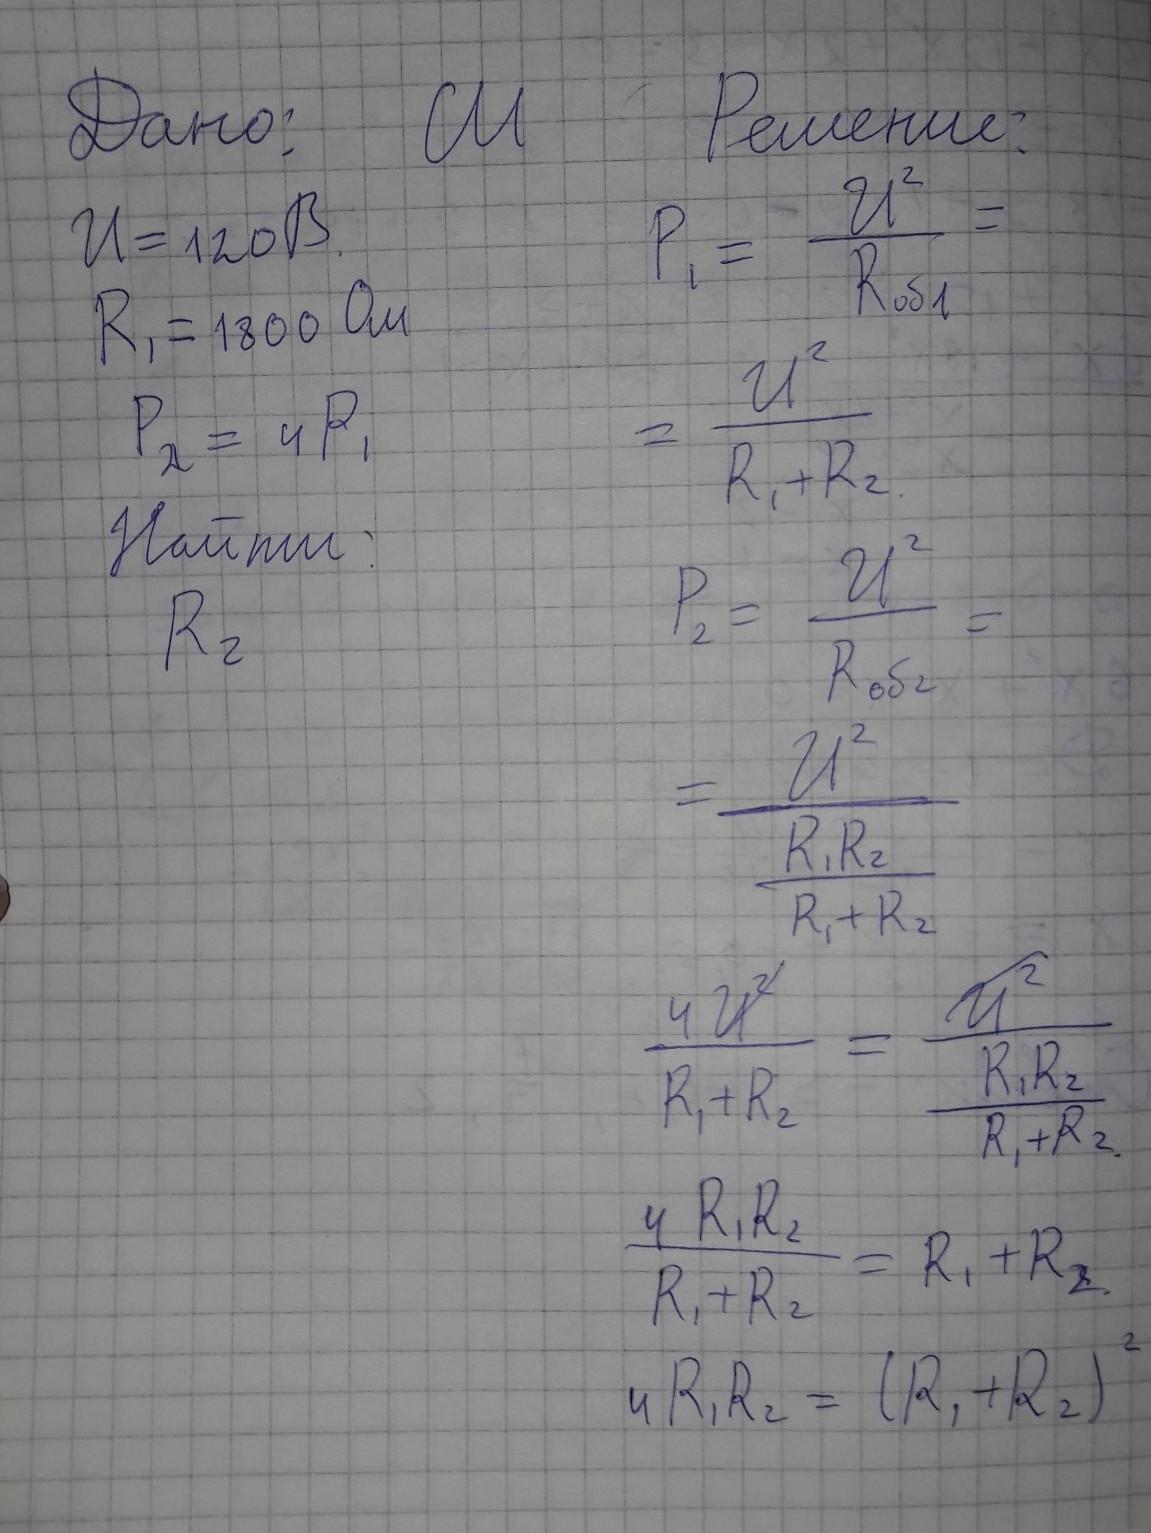 Дано: СИ Решение:
U = 120 В.
R₁ = 1800 Ом
P₂ = 4P₁
Найти:
R₂
P₁ = U² / Rоб1 =
= U² / (R₁+R₂).
P₂ = U² / Rоб2 =
= U² / (R₁R₂ / (R₁+R₂))
4U² / (R₁+R₂) = U² / (R₁R₂ / (R₁+R₂)).
4 R₁R₂ / (R₁+R₂) = R₁+R₂.
4R₁R₂ = (R₁+R₂)²